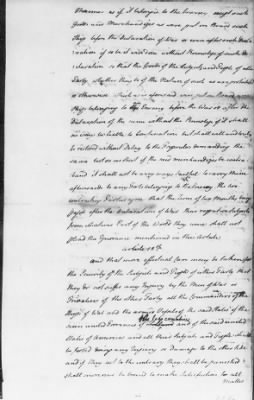 Manner as if it belonged to the Enemy except such
Goods and Merchandizes as were put on Board such
Ship before the Declaration of War or even after such Decla-
ration if so be it was done without Knowledge of such De-
claration so that the Goods of the Subjects and People of either
Party, whether they be of the Nature of such as are prohibited
or otherwise which as is aforesaid were put on Board any
Ship belonging to an Enemy before the War or after the
Declaration of the same without the Knowledge of it shall
no wise be liable to Confiscation but shall well and truly
be restored without Delay to the Proprietors demanding the
same but so as that if the said merchandizes be contra-
band it shall not be any ways lawful to carry them
afterwards to any Ports belonging to the Enemy. The two
contracting Parties agree that the term of two Months being
passed after the Declaration of War their respective Subjects
from whatever Part of the World they come shall not
plead the Ignorance mentioned in this Article.
Article
and that more effectual Care may be taken for
the Security of the Subjects and People of either Party that
they do not suffer any Injury by the Men of War or
Privateers of the other Party all the Commanders of the
Ships of War and the armed Vessels of the said States of the
seven united Provinces of and of the said united
States of America and all their Subjects and People shall
be forbid doing any Injury or Damage to the other Side
and if they act to the contrary they shall be punished
shall moreover be bound to make Satisfaction for all
matter